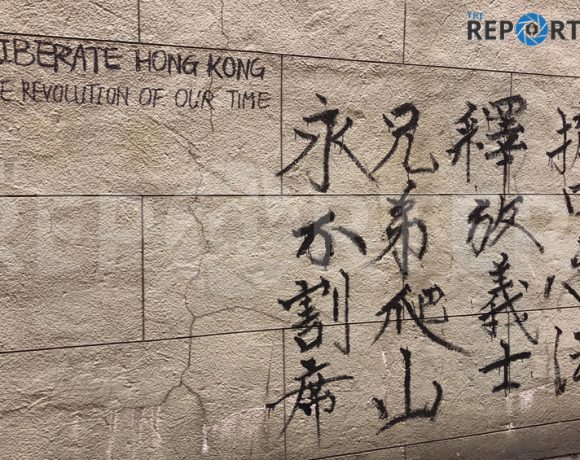 THE
REPORT
LIBERATE HONG KONG
E REVOLUTION OF OUR TIME
釋放義士
兄弟爬山
永不割席